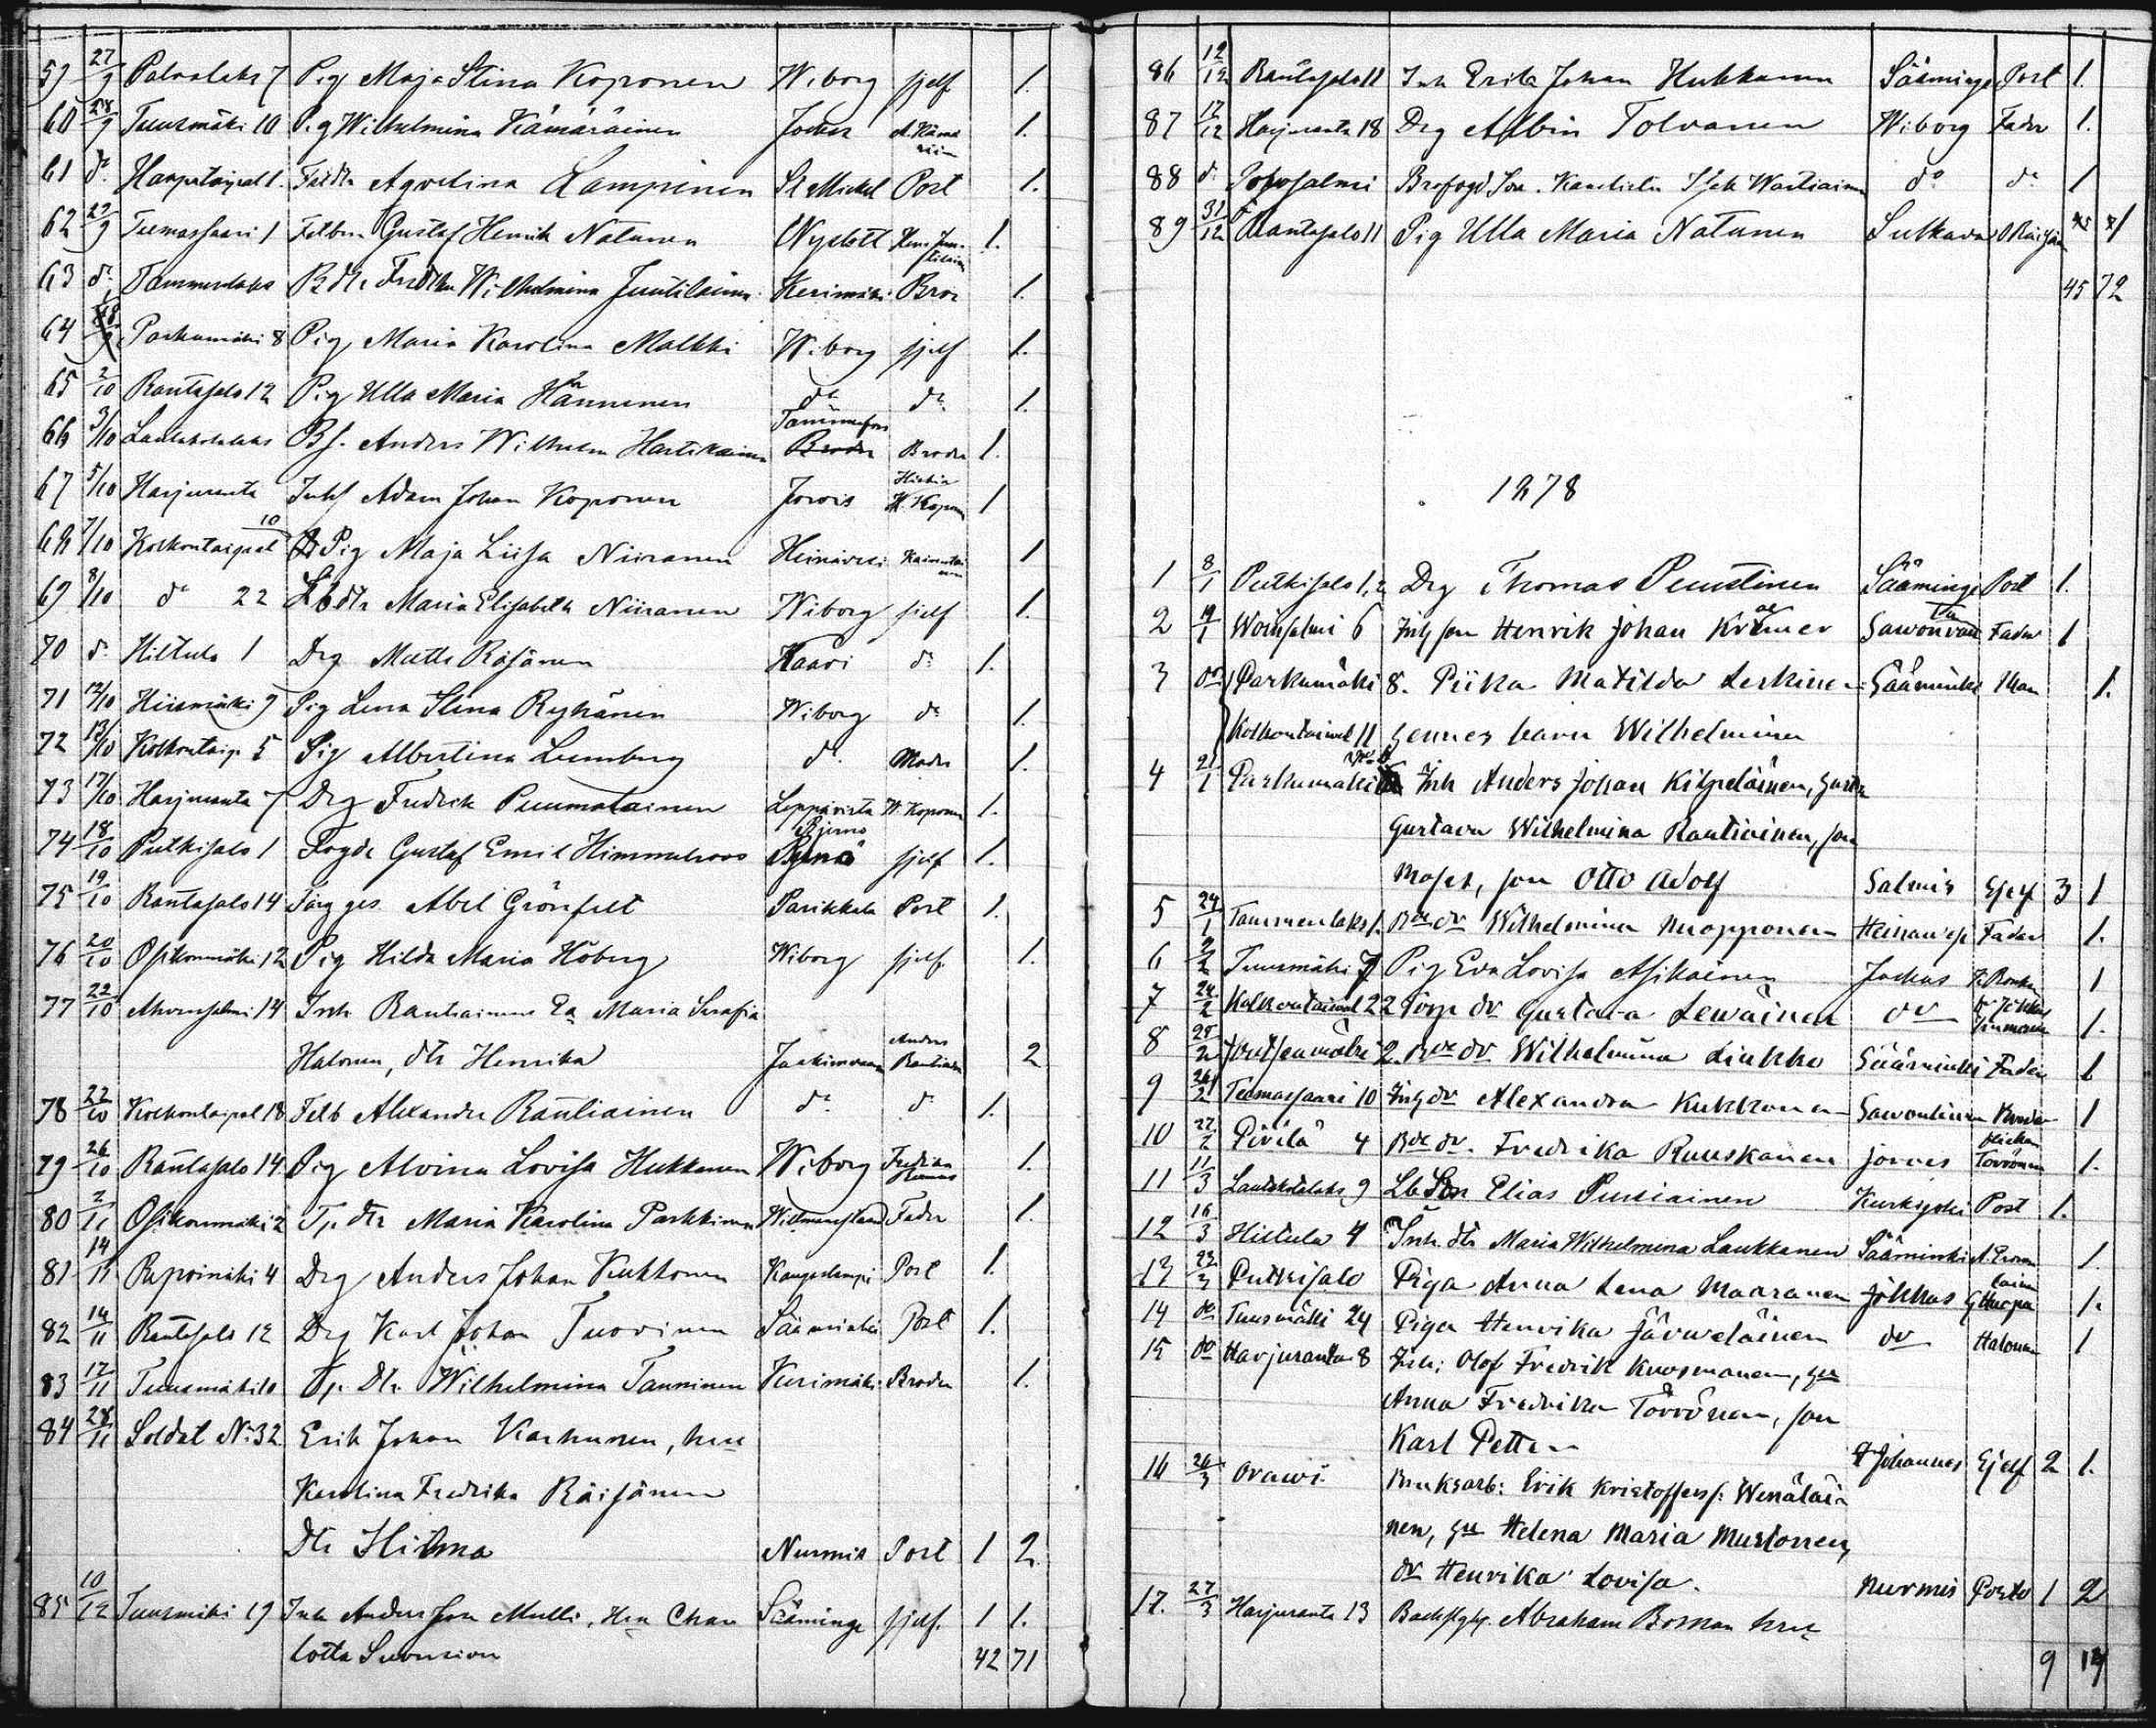 59 27/9 Patvalaks 7 Pig Maja Stina Koponen Wiborg sjelf 1.
60 28/9 Tuusmäki 10 Pig Wilhelmina Kämäräinen Jockas 1.
61 do Haapataipal 1. Agvelina Lampinen St Mickel Post 1.
62 29/9 Teemassaari 1 Gustaf Henrik Natunen Nyslott 1.
63 do Tammenlaks Wilhelmina Juutilainen Kerimäki Bror 1.
64 Parkumäki 8 Pig Maria Karolina Malkki Wiborg sjelf 1.
65 2/10 Rantasalo 12 Pig Ulla Maria Hänninen do do 1.
66 3/10 Bs. Anders Wilhelm Hartikainen Tammerfors Broder 1.
67 5/10 Harjuranta Inhs Adam Johan Koponen Jorois H. Kopon 1
68 7/10 Kolkontaipal 10 Pig Maja Liisa Niiranen Heinävesi 1
69 8/10 do 22 Lb dtr Maria Elisabeth Niiranen Wiborg sjelf 1.
70 do Hiltula 1 Drg Matts Räsänen Kaavi do 1.
71 12/10 Hiismäki 9 Pig Lena Stina Ryhänen Wiborg do 1.
72 13/10 Kolkontaip 5 Pig Albertina Lumberg do Moder 1.
73 17/10 Harjuranta 7 Drg Fredrik Puumalainen Leppävirta W. Koponen 1.
74 18/10 Putkisalo 1 Fogde Gustaf Emil Himmelroos Bjerno sjelf 1.
75 19/10 Rantasalo 14 Färg ges. Abel Grönfelt Parikkala Post 1.
76 20/10 Osikonmäki 12 Pig Hilda Maria Höberg Wiborg sjelf. 1.
77 22/10 Ahvensalmi 14 Inh. Rautiainens Ea Maria Serafia
Halonen, dtr Henrika Jockimvaara Anders Rautiainen 2
78 22/10 Kolkontaipal 18 Felb Alexander Rautiainen do do 1.
79 26/10 Rantasalo 14. Pig Alvina Lovisa Hukkanen Wiborg Fredrika 1.
80 2/11 Osikonmäki 2 Tp. dtr Maria Karolina Parkkinen Wilmanstrand Fader 1.
81 14/11 Repoimäki 4 Drg Anders Johan Kukkonen Kangaslampi Post 1.
82 14/11 Rantasalo 12 Drg Karl Johan Tuovinen Sääminki Post 1.
83 17/11 Tuusmäki 10 Tp. Dtr. Wilhelmina Tanninen Kerimäki Broder 1.
84 28/11 Soldat No 32 Erik Johan Karhunen, hru
Karolina Fredrika Räisänen
Dtr Hilma Nurmis Post 1 2.
85 10/12 Tuusmäki 19 Inh Anders Mulli, Hru Char Sääminge sjelf. 1 1.
lotta 42 71
86 12/12 Rantasalo 11 Inh Erik Johan Hukkanen Sääminge Post 1.
87 17/12 Harjuranta 18 Drg Albin Tolvanen Wiborg Fader 1.
88 do Johosalmi Brofogd Son. Isak Wartiainen do do 1
89 31/12 Rantasalo 11 Pig Ulla Maria Natunen Sulkava
45 72
1878
1 8/1 Putkisalo 1,2 Drg Thomas Puustinen Sääminge Post 1.
2 19/1 Woinsalmi 6 Inh son Henrik Johan Krämer Fader 1
3 do Parkumäki 8. Piika Matilda Leskinen Sääminki Man 1.
Kolkontaival 11 hennes barn Wilhelmina
4 21/1 Parkumäki Inh Anders Johan Kilpeläinen, hustr
Gustava Wilhelmina Rautiainen, son
Moses, son Otto Adolf Salmis Sjelf 3 1
5 24/1 Tammenlaks 1. Bde dr Wilhelmina Muopponen Heinäwesi Fader 1.
6 2/2 Tuusmäki 7 Pig Eva Lovisa Asikainen Jockas 1
7 24/2 Kolkontaival 22 Torp dr Gustava Lewäinen do 1.
8 25/2 2. Bde dr Wilhelmina Liukko Sääminki Fader 1
9 26/2 Teemassaari 10 Inh dr Alexandra Kukkonen Sawonlinna Broder 1
10 27/2 Pirilä 4 Bde dr. Fredrika Ruuskanen Jorois Torvönen 1.
11 11/3 9 Lb Son Elias Pursiainen Kurkijoki Post 1.
12 16/3 Hiltula 4 Inh. dtr Maria Wilhelmina Laukkanen Sääminki 1.
13 23/3 Putkisalo Piga Anna Lena Maaranen Jokkas 1.
14 do Tuusmäki 24 Piga Henrika Järweläinen do Halonen 1
15 do Harjuranta 8 Inh: Olof Fredrik Kuosmanen, hu
Anna Fredrika Torvönen, son
Karl Petter St Johannes Sjelf 2 1.
16 26/3 Orawi. Bruksarb: Erik Kristoffers s: Wenäläi
nen, hu Helena Maria Mustonen,
dr Henrika Lovisa. Nurmis Posto 1 2
17. 27/3 Harjuranta 13 Abraham Boman hru
9 14